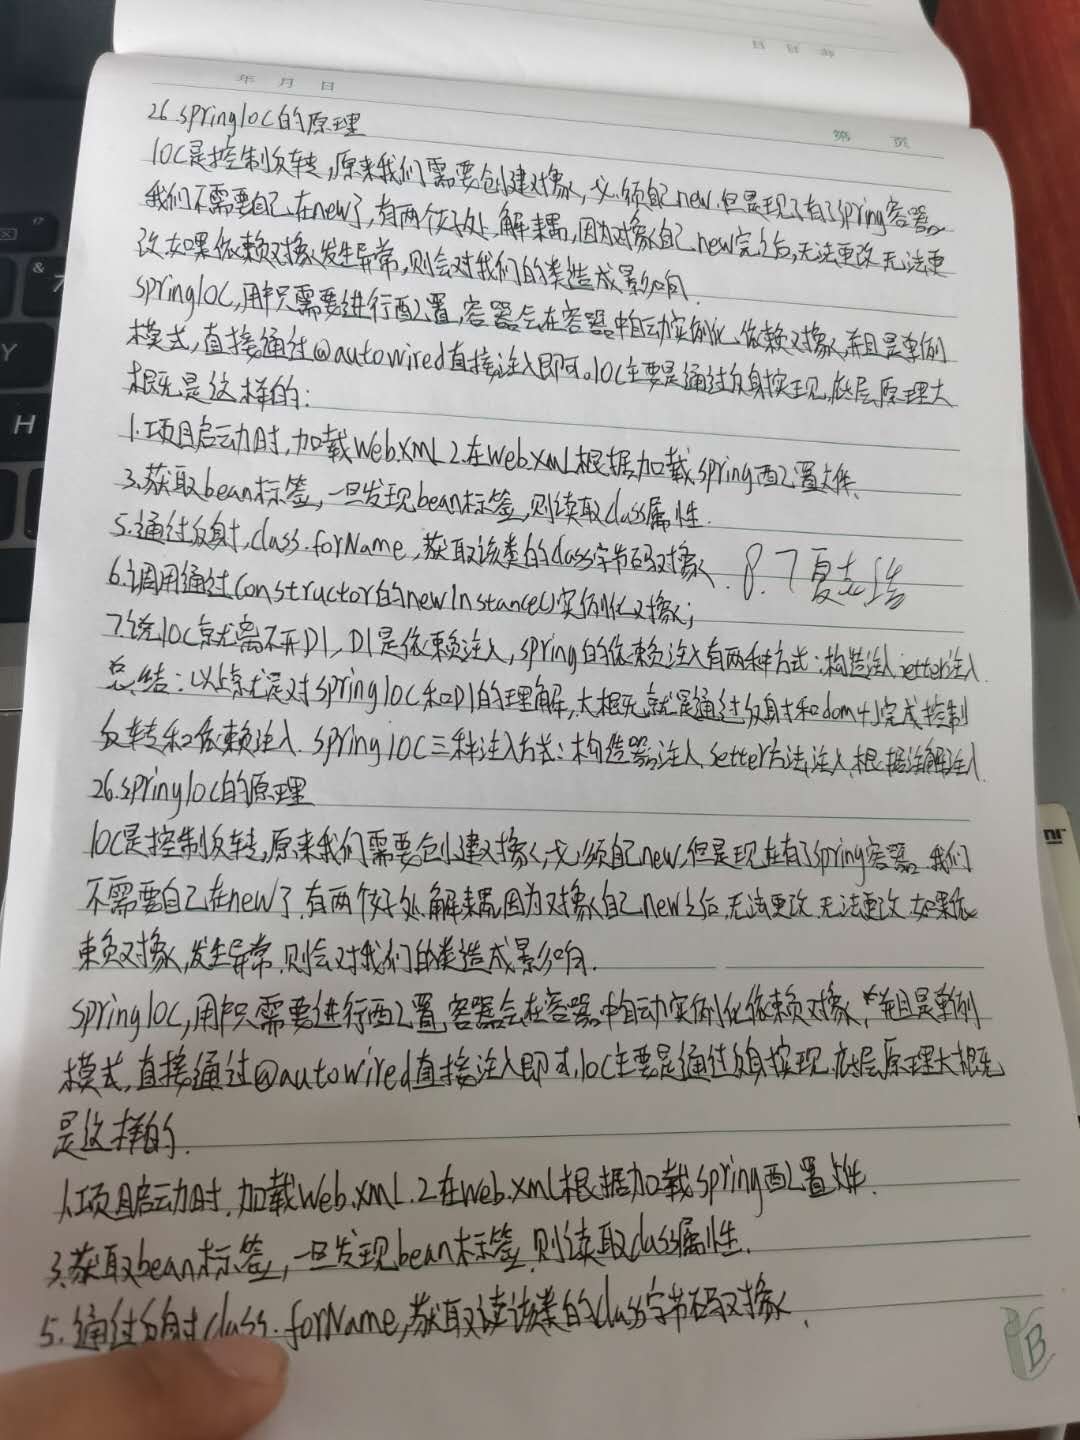 年 月 日
第 页
26.springIOC的原理
IOC是控制反转,原来我们需要创建对象,必须自己new.但是现在有了spring容器
我们不需要自己在new了,有两个好处,解耦,因为对象自己new完之后,无法更改 无法更
改.如果依赖对象发生异常,则会对我们的类造成影响.
springIOC,用户只需要进行配置,容器会在容器中自动实例化依赖对象,并且是单例
模式,直接通过@autowired直接注入即可。IOC主要是通过反射实现,底层原理大
概是这样的:
1.项目启动时,加载web.xml 2.在web.xml根据加载spring配置文件.
3.获取bean标签,一旦发现bean标签,则读取class属性.
5.通过反射,class.forName,获取该类的class字节码对象. 8.7 夏志浩
6.调用通过constructor的newInstance()实例化对象;
7.说IOC就离不开DI,DI是依赖注入,spring的依赖注入有两种方式:构造注入 setter注入.
总结:以上就是对springIOC和DI的理解,大概就是通过反射和dom4j完成控制
反转和依赖注入.spring IOC三种注入方式:构造器注入,setter方法注入,根据注解注入.
26.springIOC的原理
IOC是控制反转,原来我们需要创建对象,必须自己new,但是现在有了spring容器,我们
不需要自己在new了.有两个好处.解耦,因为对象自己new之后,无法更改 无法更改.如果依
赖对象,发生异常,则会对我们的类造成影响.
springIOC,用户只需要进行配置,容器会在容器中自动实例化依赖对象,并且是单例
模式,直接通过@autowired直接注入即可.IOC主要是通过反射实现.底层原理大概
是这样的.
1.项目启动时,加载web.xml.2.在web.xml根据加载spring配置文件.
3.获取bean标签,一旦发现bean标签,则读取class属性.
5.通过反射class.forName,获取读该类的class字节码对象.
B